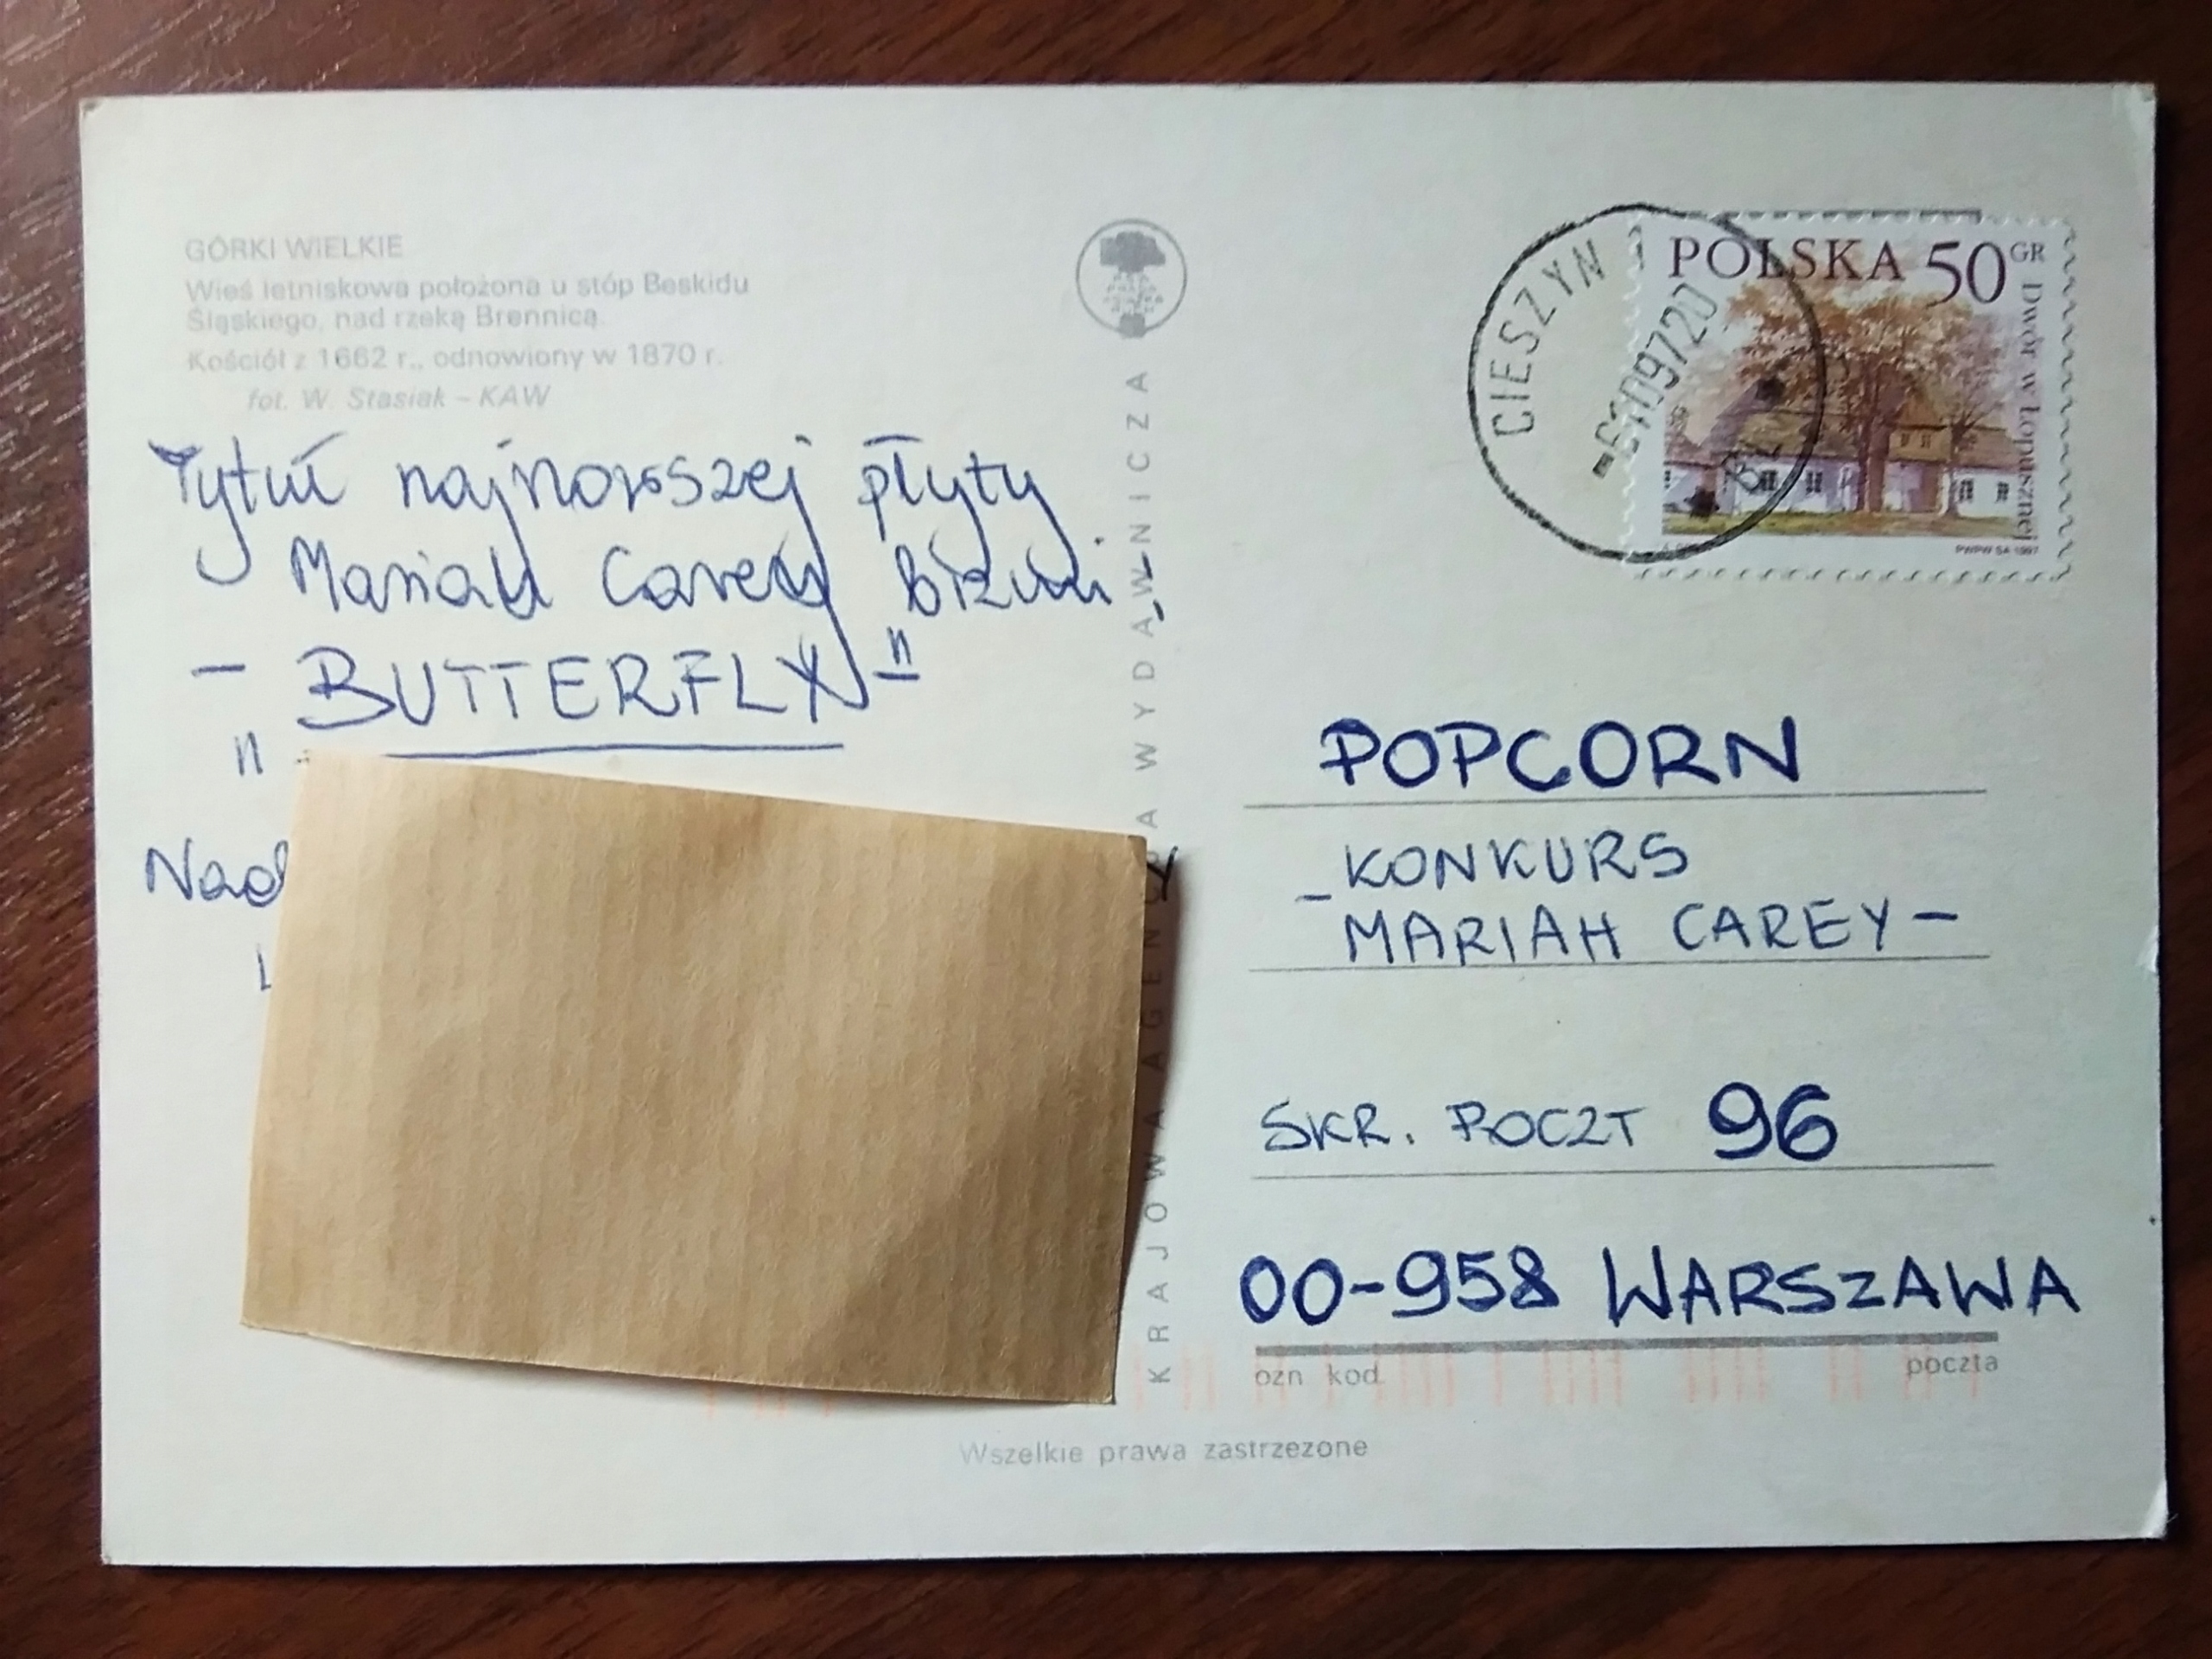 GÓRKI WIELKIE
Wieś letniskowa położona u stóp Beskidu
Śląskiego, nad rzeką Brennicą.
Kościół z 1662 r., odnowiony w 1870 r.
fot. W. Stasiak – KAW
Tytuł najnowszej płyty
Mariah Carey brzmi
– BUTTERFLY –
"
"
Nad
KRAJOWA AGEN WYDAWNICZA
CIESZYN
POLSKA 50 GR
Dwór w Łopusznej
PWPW SA 1997
POPCORN
– KONKURS
MARIAH CAREY –
SKR. POCZT 96
00-958 WARSZAWA
ozn kod poczta
Wszelkie prawa zastrzezone